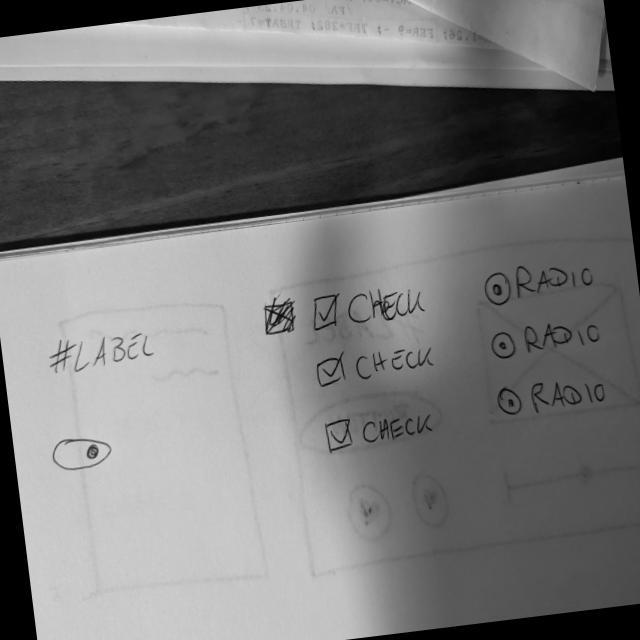 #LABEL
CHECK
CHECK
CHECK
RADIO
RADIO
RADIO